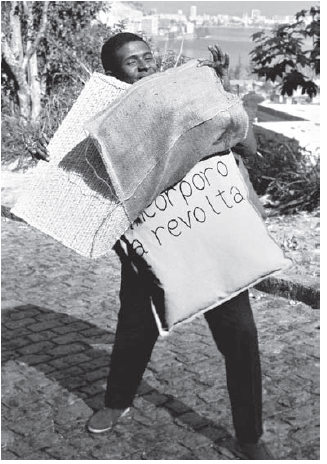 incorporo
a revolta